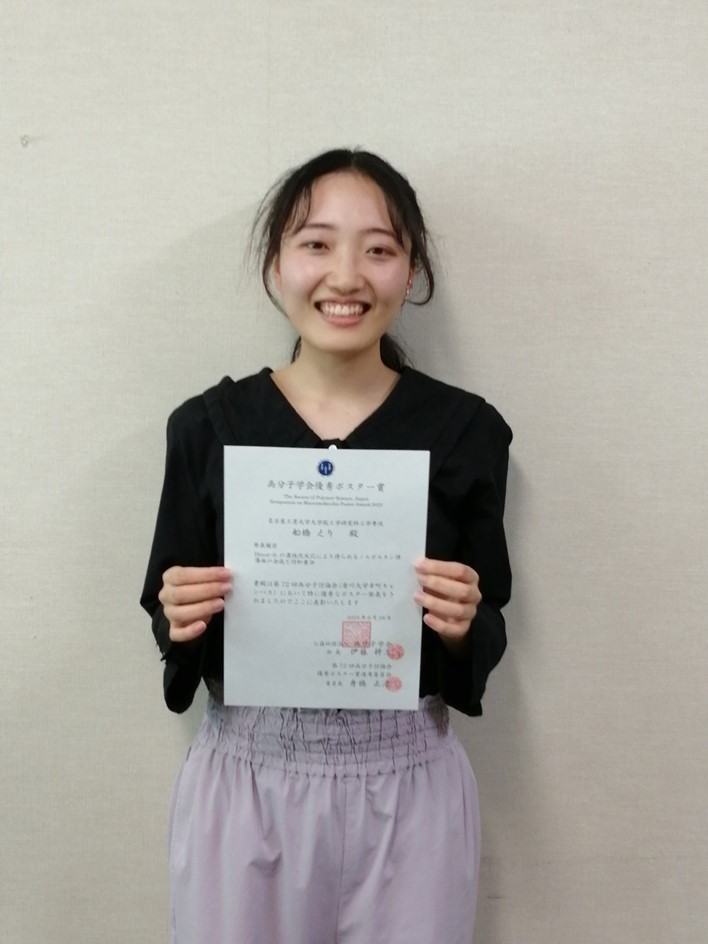 高分子学会優秀ポスター賞
The Society of Polymer Science, Japan
Symposium on Macromolecules Poster Award 2023
名古屋工業大学大学院工学研究科工学専攻
船橋 えり 殿
発表題目
により得られるノルボルネン誘
貴殿は第72回高分子討論会(香川大学幸町キャ
ンパス)において特に優秀なポスター発表をさ
れましたのでここに表彰いたします
公益社団法人 高分子学会
会長 伊藤
第72回高分子討論会
優秀ポスター賞選考委員会
委員長